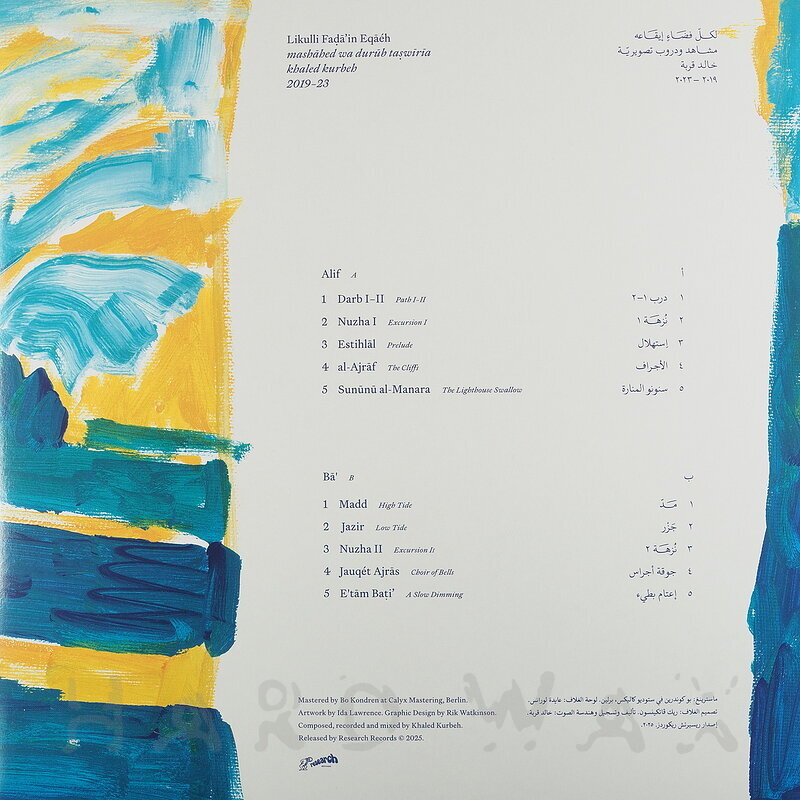 Likulli Faḍā'in Eqāéh
mashāhed wa durūb taṣwiria
khaled kurbeh
2019–23
لكلّ فضاءٍ إيقاعه
مشاهد ودروب تصويريّة
خالد قربة
٢٠١٩ – ٢٠٢٣
Alif A
أ
1 Darb I–II Path I-II
١ درب ١–٢
2 Nuzha I Excursion I
٢ نُزهَة ١
3 Estihlāl Prelude
٣ إستهلال
4 al-Ajrāf The Cliffs
٤ الأجراف
5 Sunūnū al-Manara The Lighthouse Swallow
٥ سنونو المنارة
Bā' B
ب
1 Madd High Tide
١ مَدّ
2 Jazir Low Tide
٢ جَزْر
3 Nuzha II Excursion II
٣ نُزهَة ٢
4 Jauqét Ajrās Choir of Bells
٤ جوقة أجراس
5 E'tām Baṭi' A Slow Dimming
٥ إعتام بطيء
Mastered by Bo Kondren at Calyx Mastering, Berlin.
Artwork by Ida Lawrence. Graphic Design by Rik Watkinson.
Composed, recorded and mixed by Khaled Kurbeh.
Released by Research Records © 2025.
ماسترينغ: بو كوندرين في ستوديو كاليكس، برلين. لوحة الغلاف: عايدة لورانس.
تصميم الغلاف: ريك واتكينسون. تأليف وتسجيل وهندسة الصوت: خالد قربة.
إصدار ريسيرتش ريكوردز، ٢٠٢٥.
research